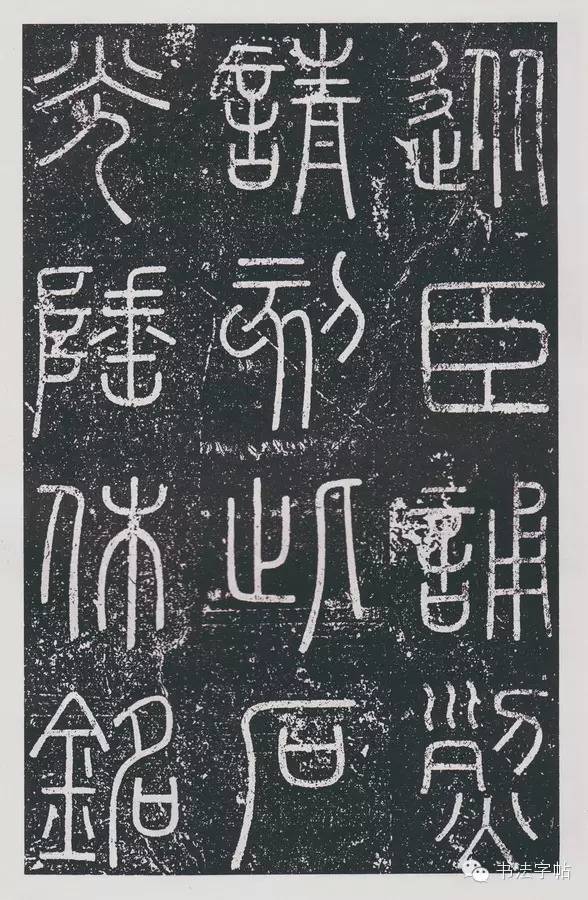 從臣誦烈
請刻此石
光陲休銘
书法字帖